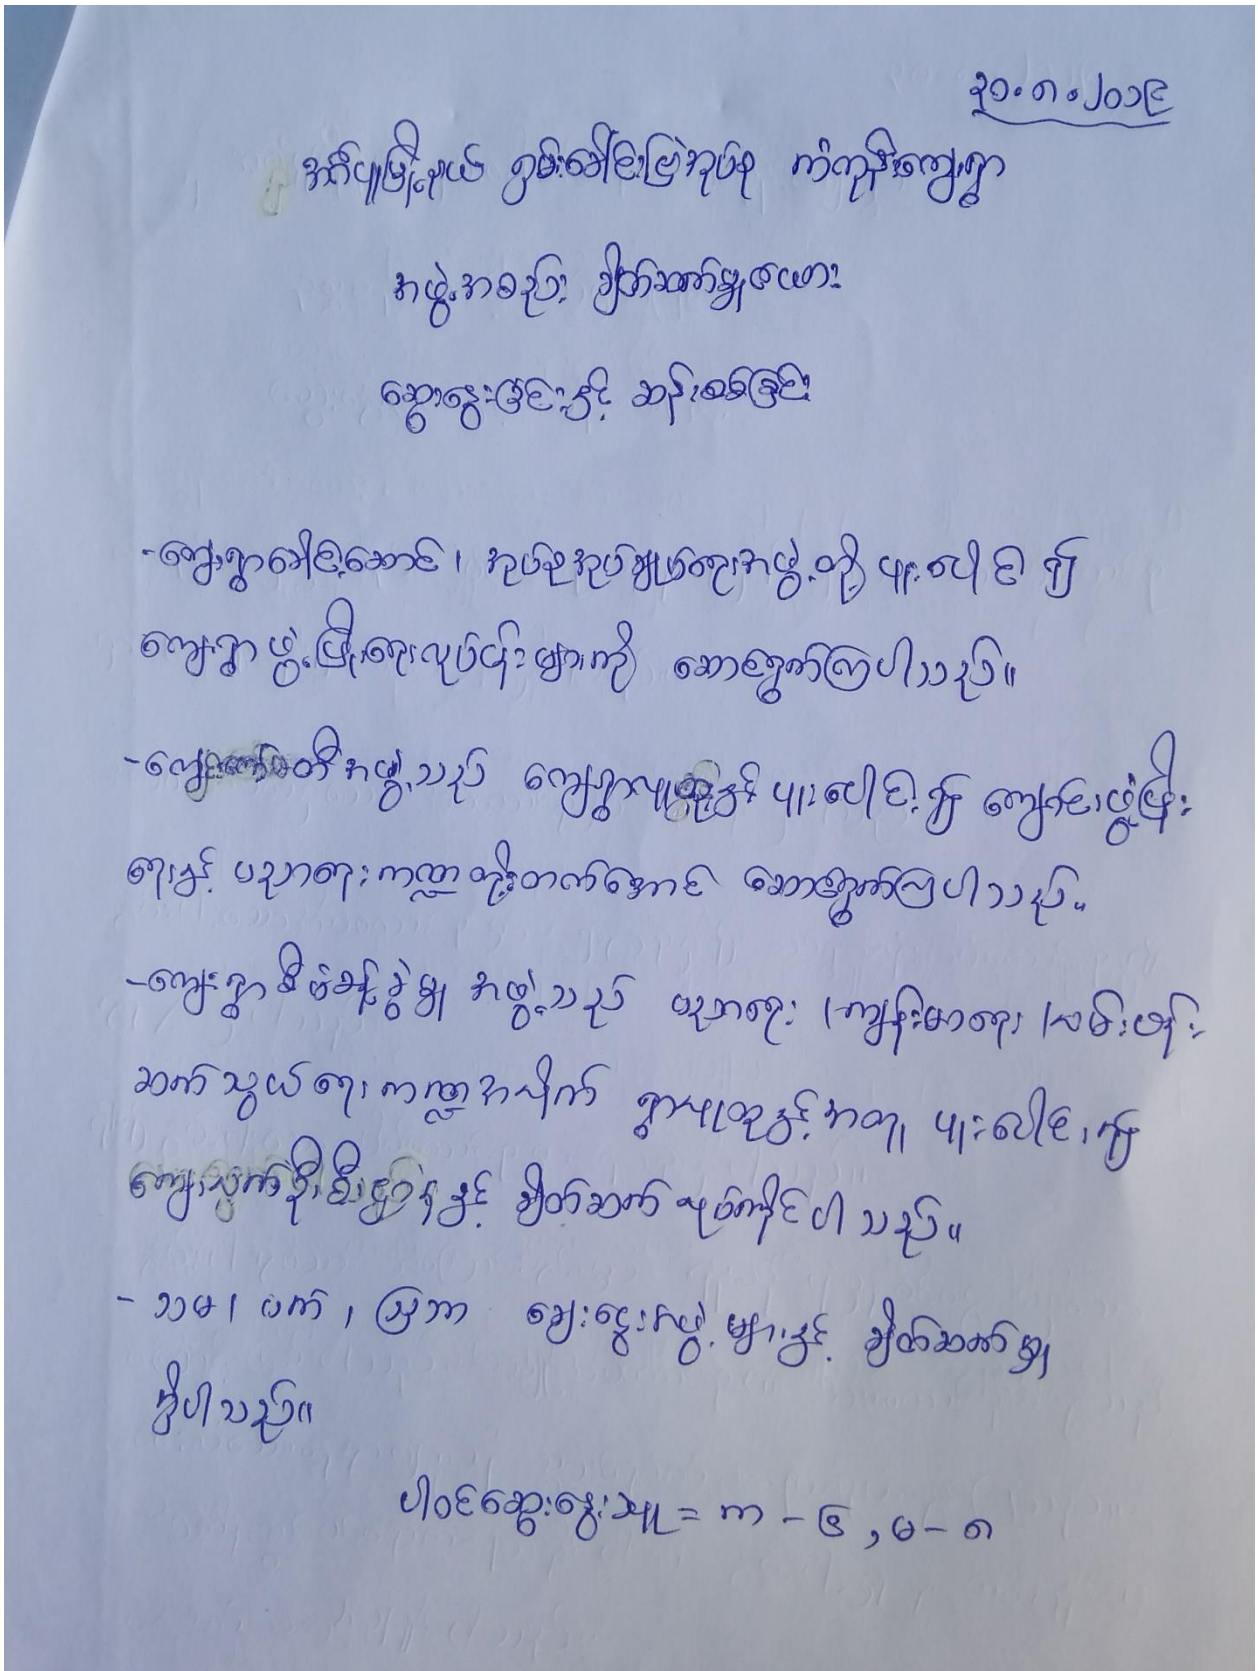 ၃၁.၈.၂၀၁၉
အင်ပျုမြို့နယ် ဂွမ်းခေါင်းပြဲအုပ်စု ကံကုန်းကျေးရွာ
အဖွဲ့အစည်း ချိတ်ဆက်မှုဇယား
ဆွေးနွေးခြင်းနှင့် ဆန်းစစ်ခြင်း
-ကျေးရွာခေါင်းဆောင်၊ အုပ်စုအုပ်ချုပ်ရေးအဖွဲ့တို့ ပူးပေါင်း၍
ကျေးရွာဖွံ့ဖြိုးရေးလုပ်ငန်းများကို ဆောင်ရွက်ကြပါသည်။
-ကျောင်းကော်မတီအဖွဲ့သည် ကျေးရွာလူထုနှင့် ပူးပေါင်း၍ ကျောင်းဖွံ့ဖြိုး
ရေးနှင့် ပညာရေးကဏ္ဍတိုးတက်အောင် ဆောင်ရွက်ကြပါသည်။
-ကျေးရွာစီမံခန့်ခွဲမှု အဖွဲ့သည် ပညာရေး ၊ကျန်းမာရေး ၊လမ်းပန်း
ဆက်သွယ်ရေးကဏ္ဍအလိုက် ရွာလူထုနှင့်အတူ ပူးပေါင်း၍
ကျေးလက်ဦးစီးဌာနနှင့် ချိတ်ဆက် လုပ်ကိုင်ပါသည်။
- သမ၊ ပက် ၊ ဩဘာ ချေးငွေအဖွဲ့များနှင့် ချိတ်ဆက်မှု
ရှိပါသည်။
ပါဝင်ဆွေးနွေးသူ = ကာ - ၄ , မ - ၈